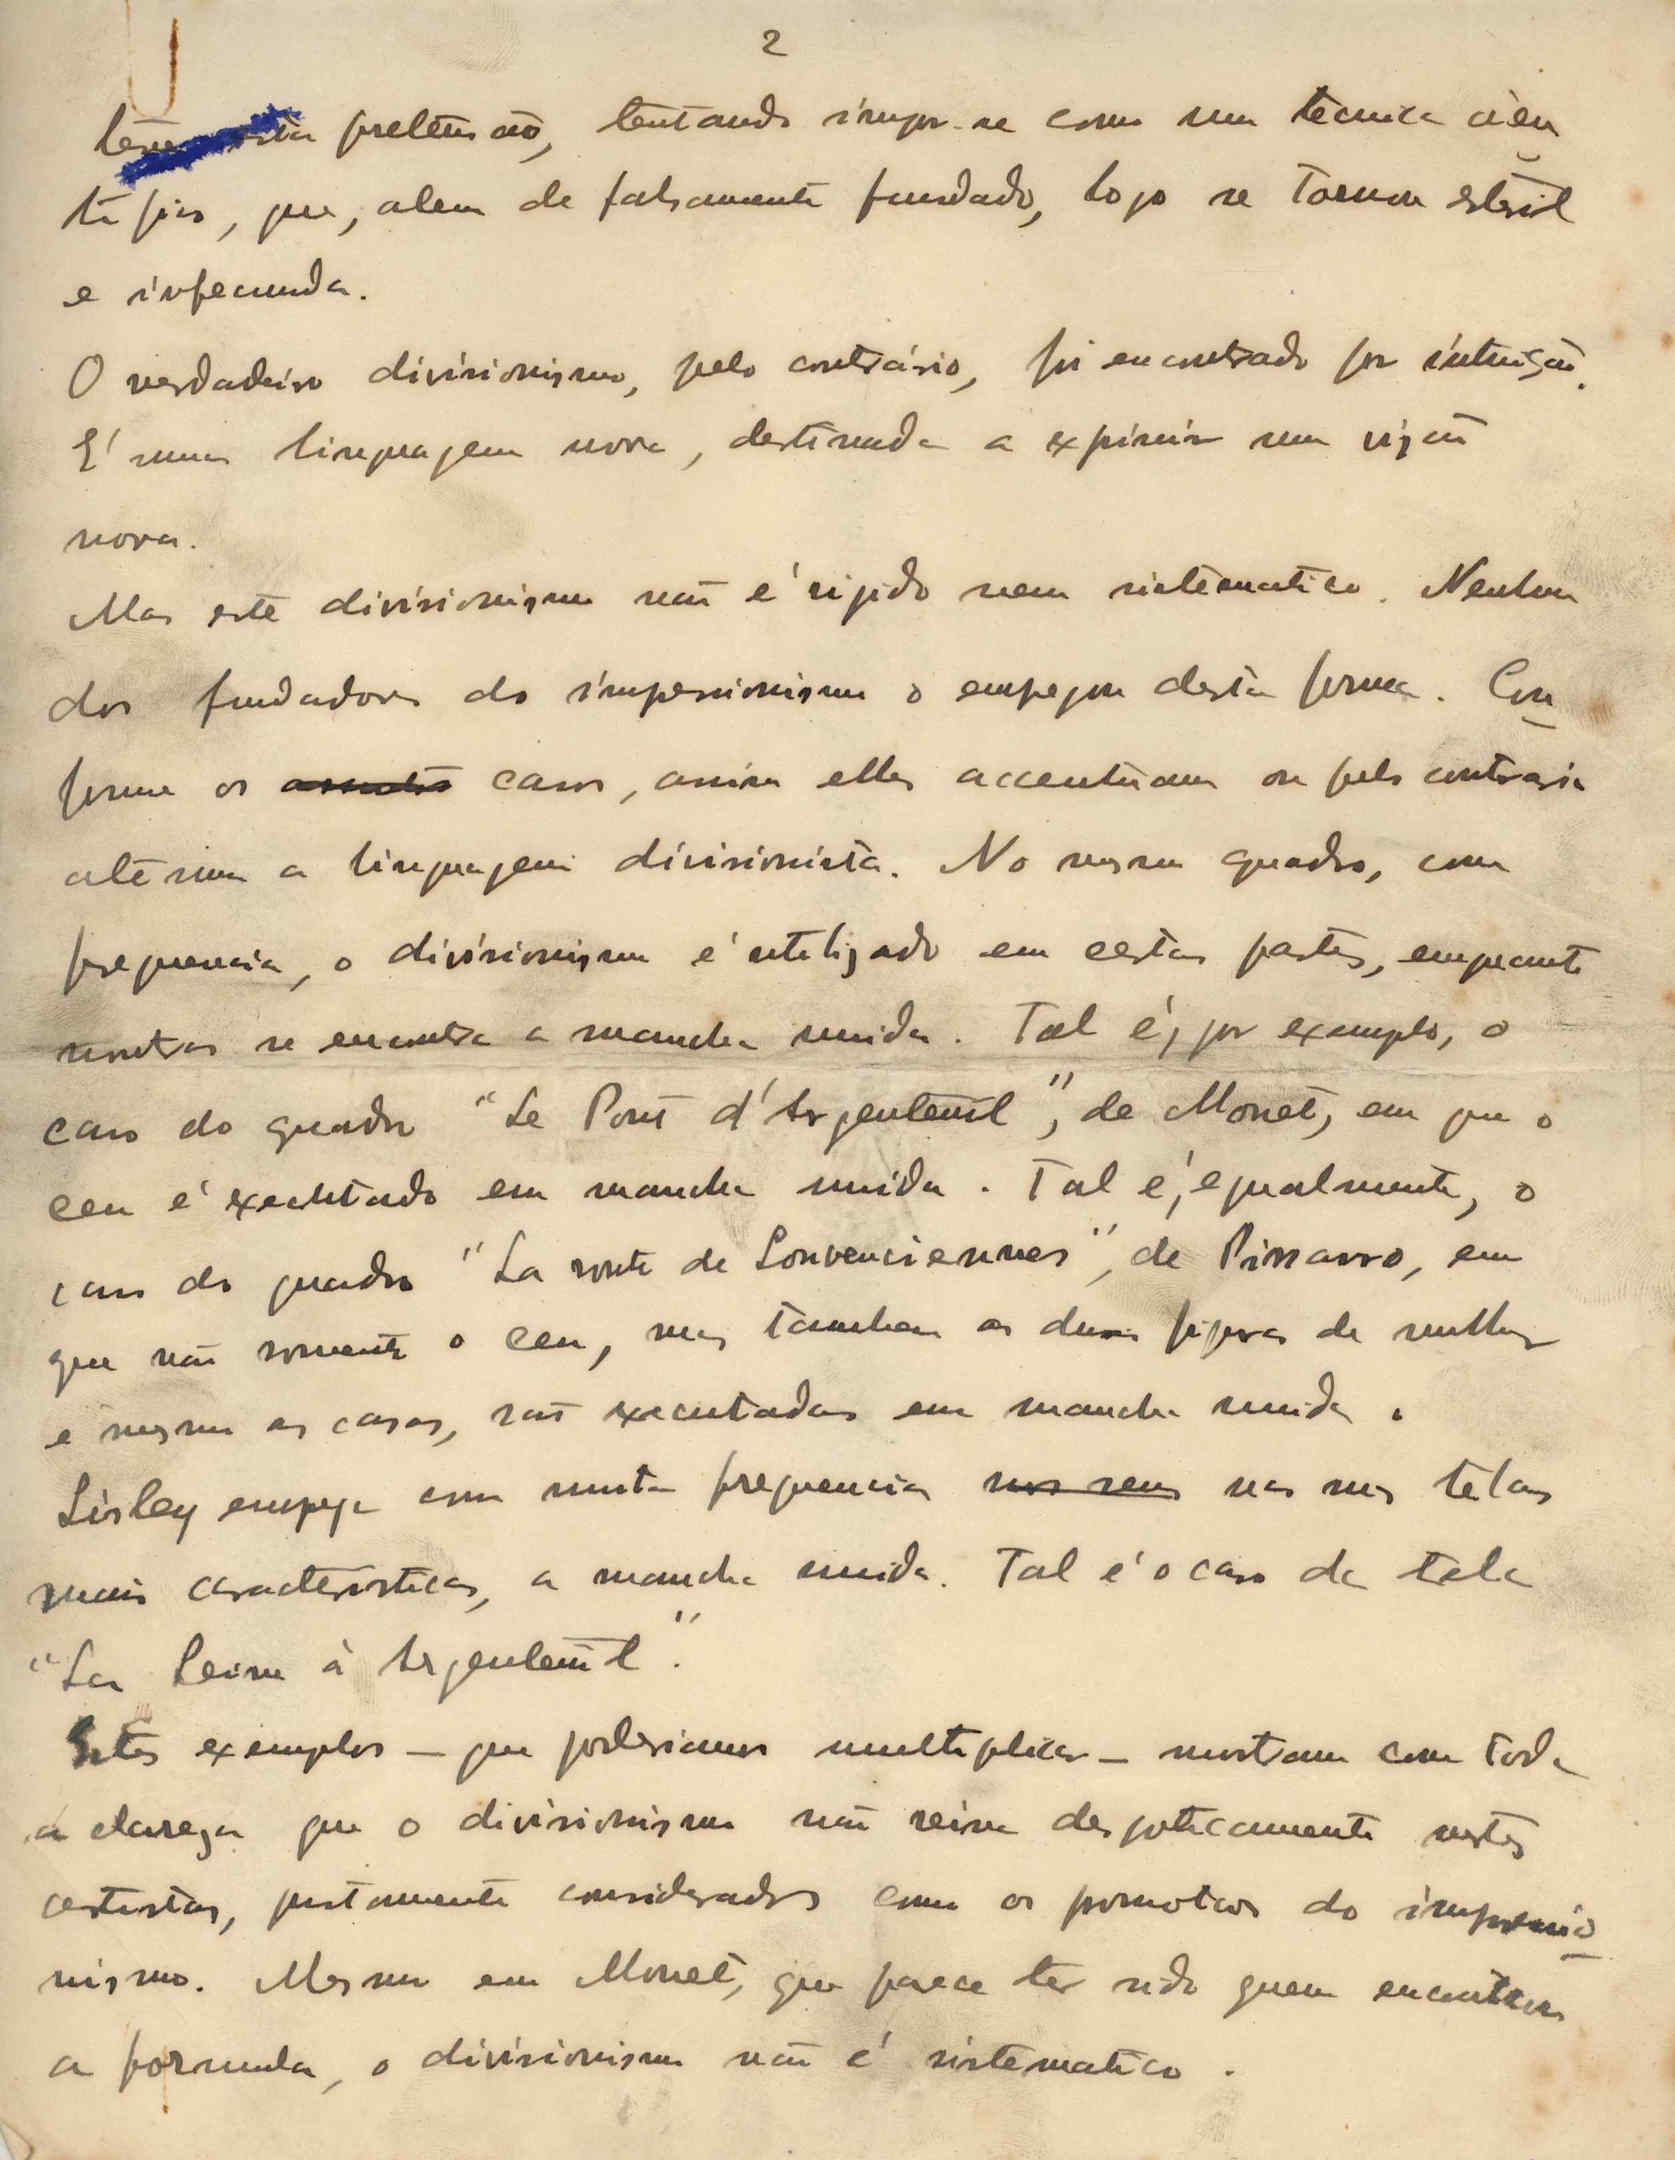 2
teve esta pretensão, tentando impor-se como um técnica cien
tifica, que, alem de falsamente fundado, logo se tornou estéril
e infecunda.
O verdadeiro divisionismo, pelo contrário, foi encontrado por intuição.
É uma linguagem nova, destinada a exprimir uma visão
nova.
Mas este divisionismo não é rigido nem sistematico. Nenhum
dos fundadores do impressionismo o empregou desta forma. Con
forme os assuntos casos, assim elles accentuam ou pelo contrario
atenuam a linguagem divisionista. No mesmo quadro, com
frequencia, o divisionismo é utilizado em certas partes, emquanto
noutras se encontra a mancha unida. Tal é, por exemplo, o
caso do quadro "Le Pont d'Argenteuil", de Monet, em que o
ceu é executado em mancha unida. Tal é, egualmente, o
caso do quadro "La route de Louveciennes", de Pissarro, em
que não somente o ceu, mas tambem as duas figuras de mulher
e mesmo as casas, são executadas em mancha unida.
Sisley emprega com muita frequencia nos seus nas suas telas
mais caracteristicas, a mancha unida. Tal é o caso da tela
"La Seine à Argenteuil".
Estes exemplos — que poderiamos multiplicar — mostram com toda
a clareza que o divisionismo não reina despoticamente nestes
artistas, justamente considerados como os promotores do impressio
nismo. Mesmo em Monet, que parece ter sido quem encontrou
a formula, o divisionismo não é sistematico.